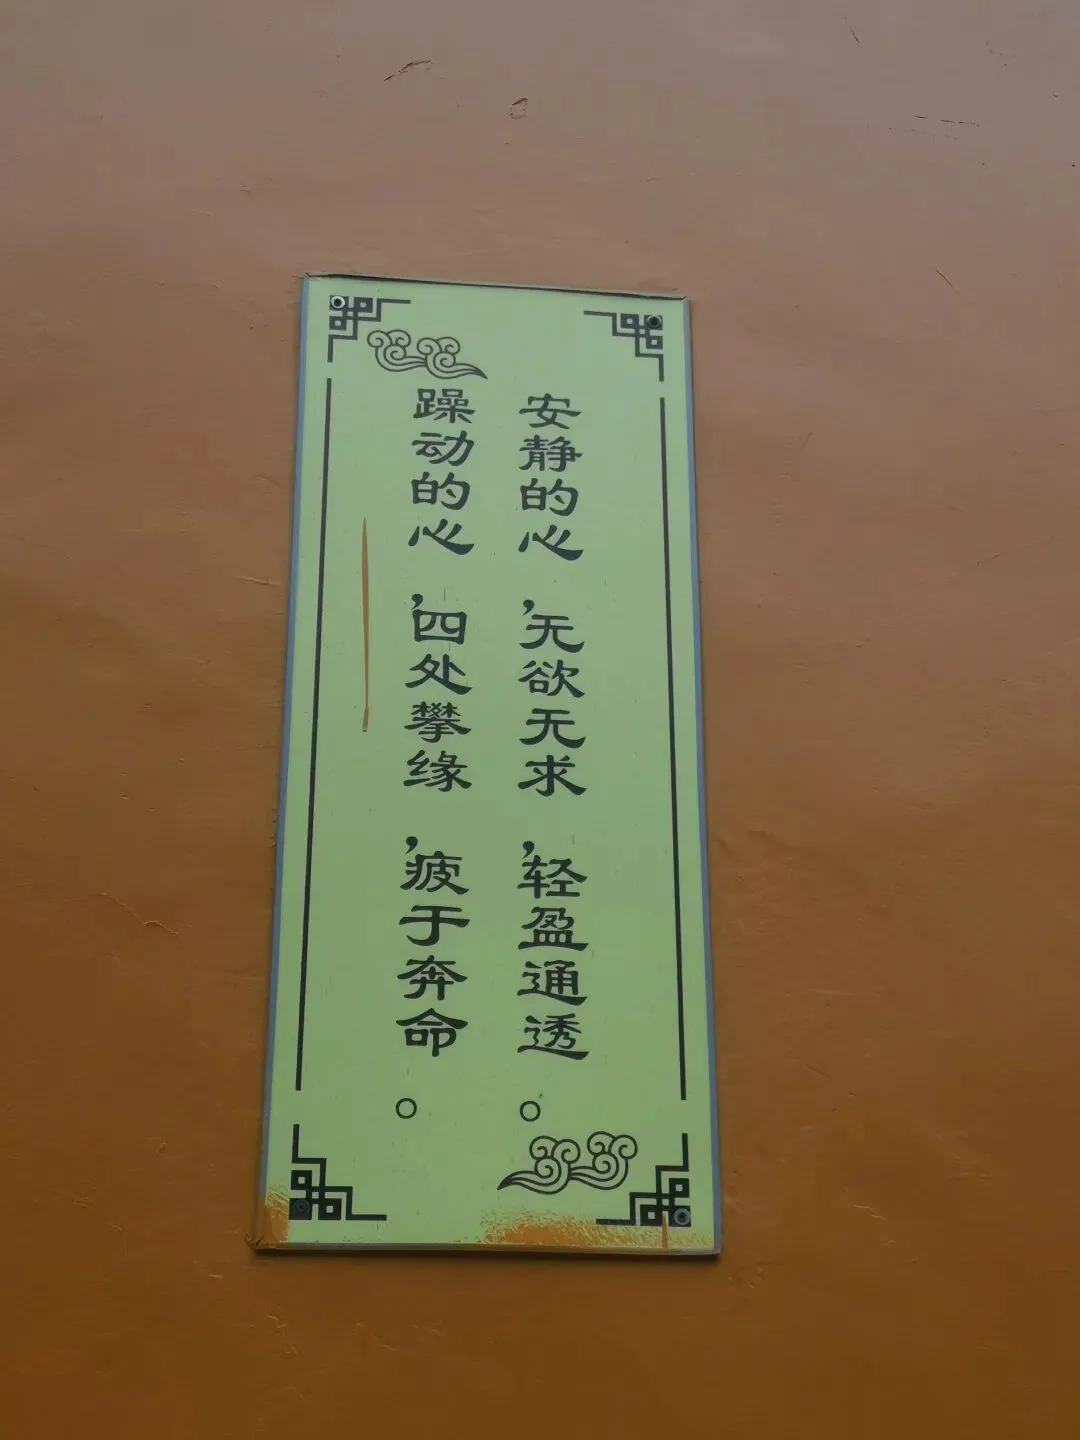 安静的心,无欲无求,轻盈通透。
躁动的心,四处攀缘,疲于奔命。